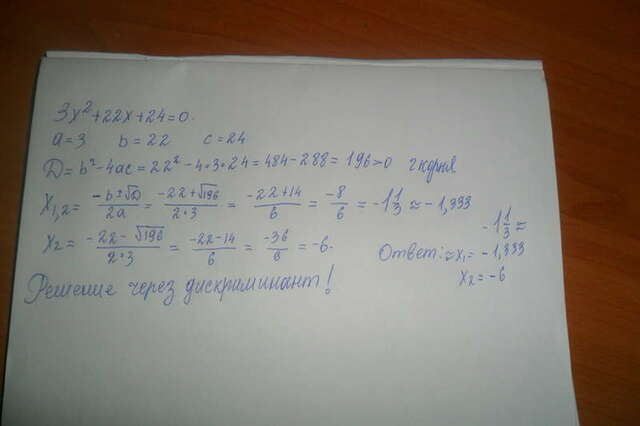 3x²+22x+24=0.
a=3 b=22 c=24
D=b²-4ac=22²-4·3·24=484-288=196>0 2 корня
X₁,₂=(-b±√D)/2a=(-22+√196)/2·3=(-22+14)/6=-8/6=-1 1/3≈-1,333
X₂=(-22-√196)/2·3=(-22-14)/6=-36/6=-6.
-1 1/3≈
Ответ:≈X₁=-1,333
X₂=-6
Решение через дискриминант!